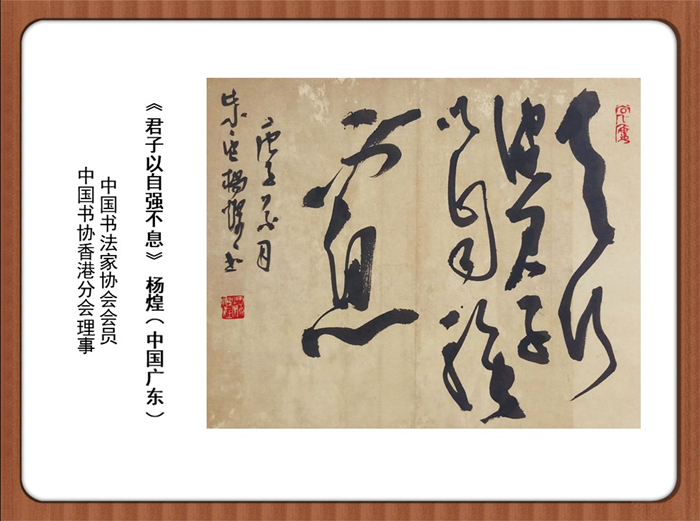 天行
健君子
以自強
不息
庚子月
楊煌书
《君子以自强不息》 杨煌（中国广东）
中国书法家协会会员
中国书协香港分会理事